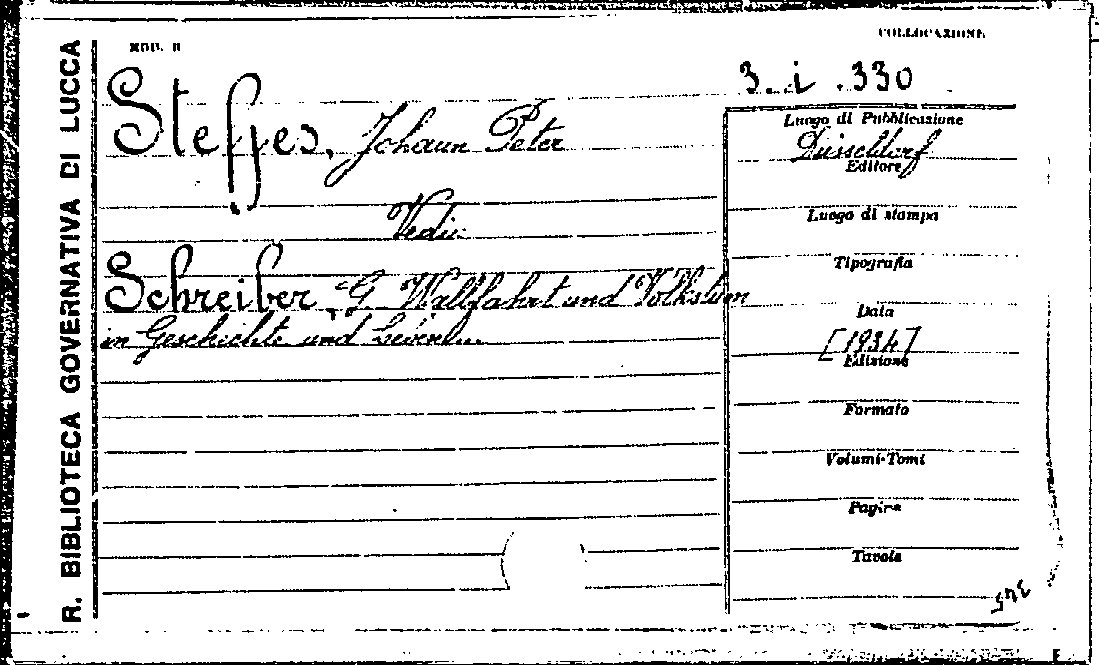 R. BIBLIOTECA GOVERNATIVA DI LUCCA
MOD. B
COLLOCAZIONE
3. i. 330
Steffes, Johann Peter
Vedi:
Schreiber, G. Wallfahrt und Volkstum
in Geschichte und Leben...
Luogo di Pubblicazione
Düsseldorf
Editore
Luogo di stampa
Tipografia
Data
[1934]
Edizione
Formato
Volumi-Tomi
Pagine
Tavole